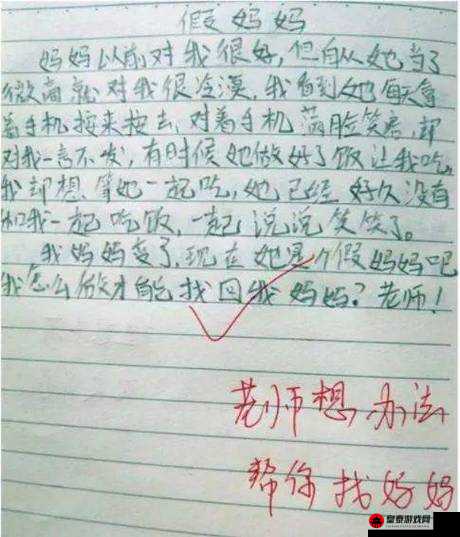 假妈妈
妈妈以前对我很好,但自从她当了
微商就对我很冷漠,我看到她每天拿
着手机按来按去,对着手机满脸笑容,却
对我一言不发,有时候她做好了饭让我吃,
我却想等她一起吃,她已经好久没有
和我一起吃饭,一起说说笑笑了。
我妈妈变了,现在她是个假妈妈吧
我怎么做才能找回我妈妈?老师!
老师想办法
帮你找好妈
皇泰游戏网